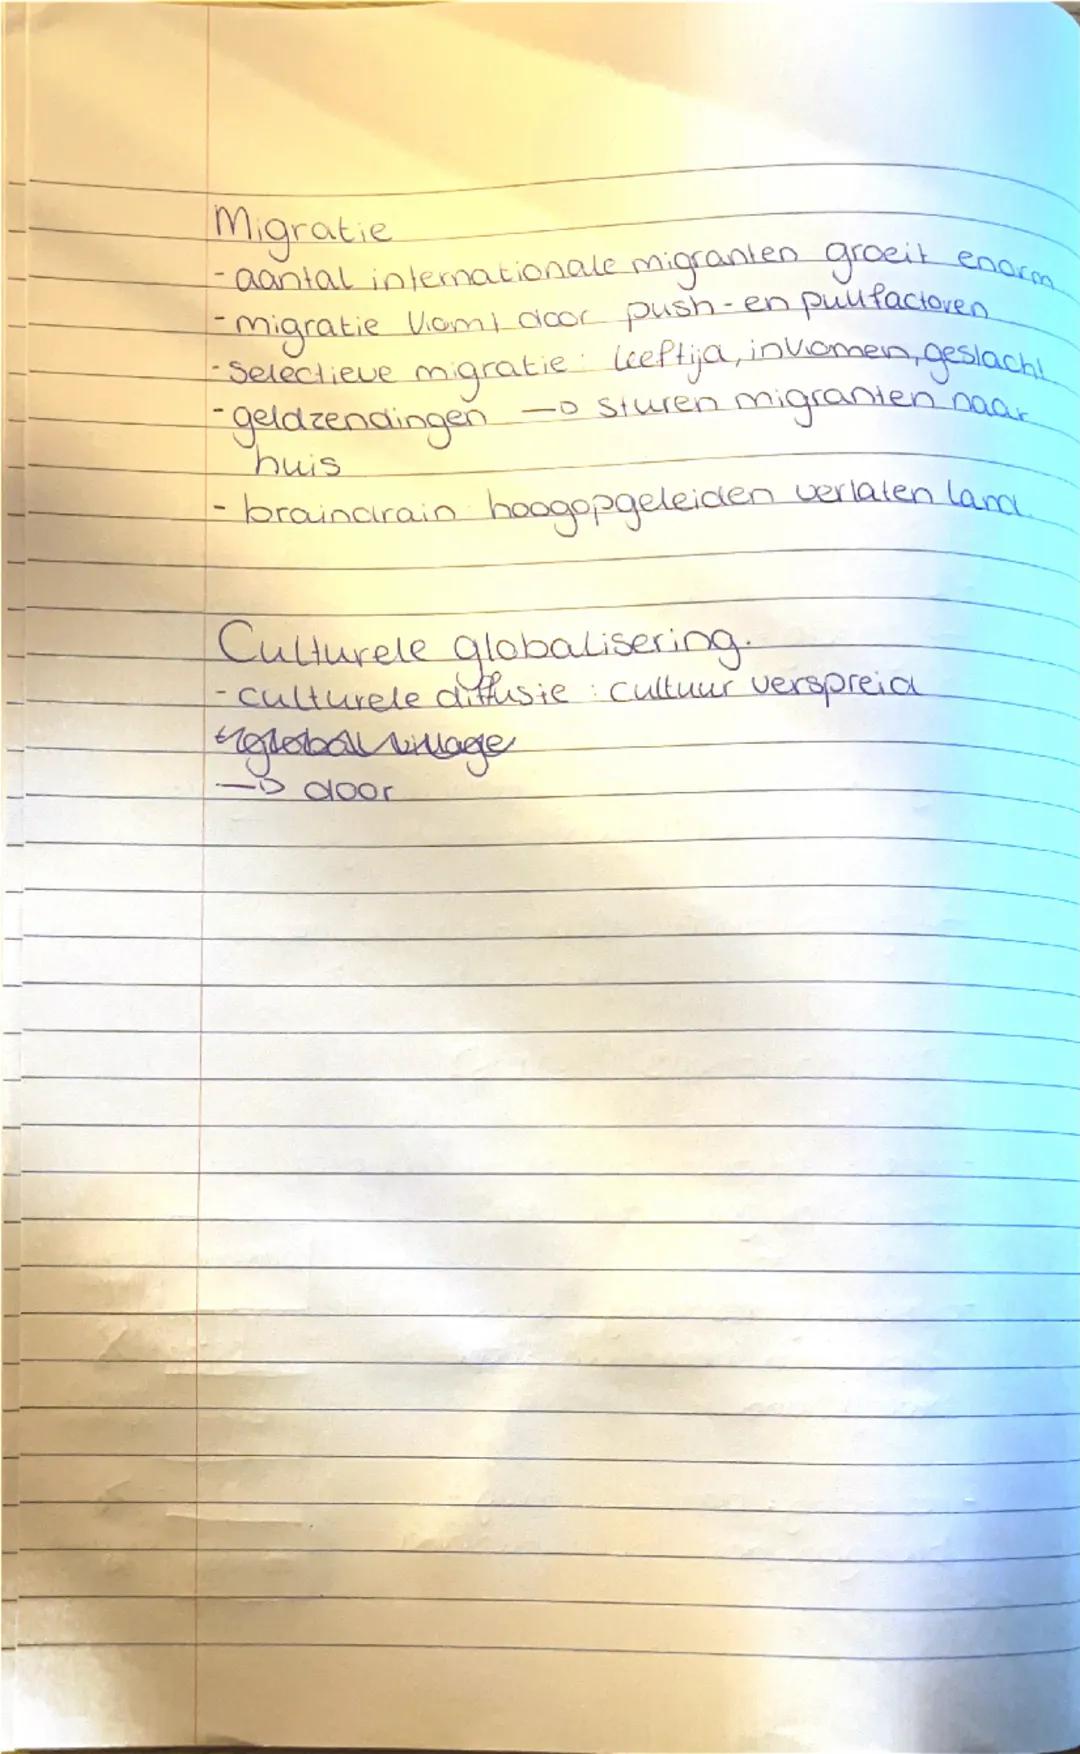 Migratie
- aantal internationale migranten groeit enorm
- migratie komt door push- en pullfactoren
- Selectieve migratie: leeftijd, inkomen, geslacht
- geldzendingen → sturen migranten naar
huis
- braindrain: hoogopgeleiden verlaten land.
Culturele globalisering.
- culturele diffusie : cultuur verspreid
global village
→ door